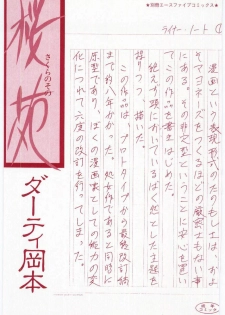 ★別冊エースファイブコミックス★
桜苑
さくらのその
ダーティ岡本
ライナーノート ①
漫画という表現形式のたのもしさは、およ
そマヨネーズをつくるほどの厳密さもない事
にある。その非文学ということに安心を置い
てこの作品を書きはじめた。
絶えず頭にわいているばく然とした主題を
探りつつ描いた。
この作品は、プロトタイプから最終改訂稿
まで約八年かかった。処女作であると同時に
原型であり、ぼくの漫画家としての能力の変
化につれて六度の改訂を行ってしまった。
成年
コミック